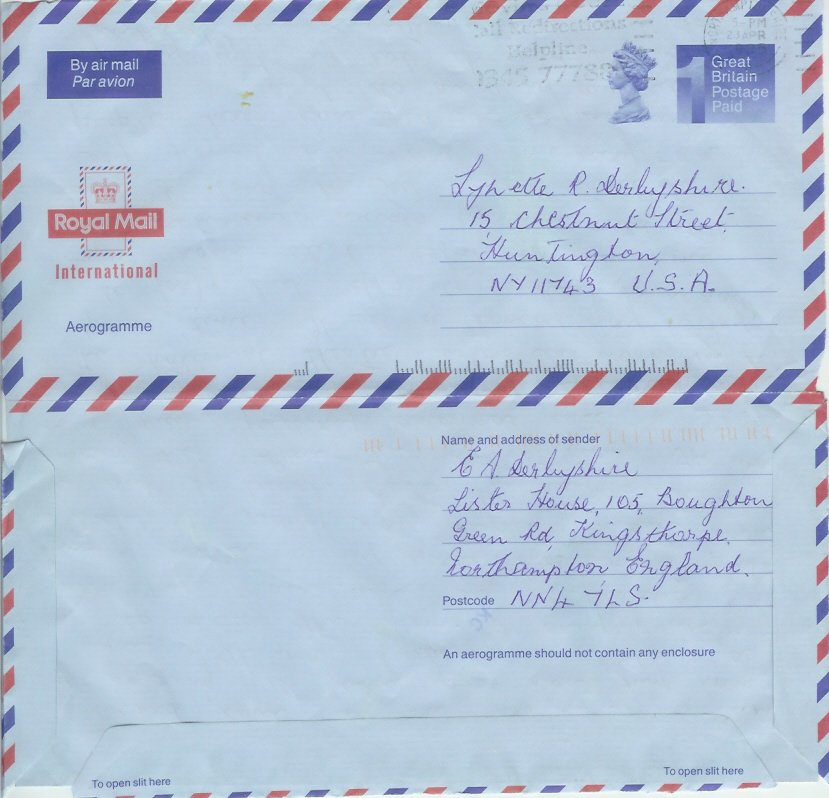 By air mail
Par avion
Mail Redirections
Helpline
5-PM
23 APR
1
Great
Britain
Postage
Paid
Royal Mail
International
Aerogramme
Lynette R. Derbyshire.
15 Chestnut Street,
Huntington,
NY 11743 U.S.A.
Name and address of sender
E A Derbyshire
Lister House, 105, Boughton
Green Rd, Kingsthorpe,
Northampton, England.
Postcode NN2 7LS.
An aerogramme should not contain any enclosure
To open slit here
To open slit here